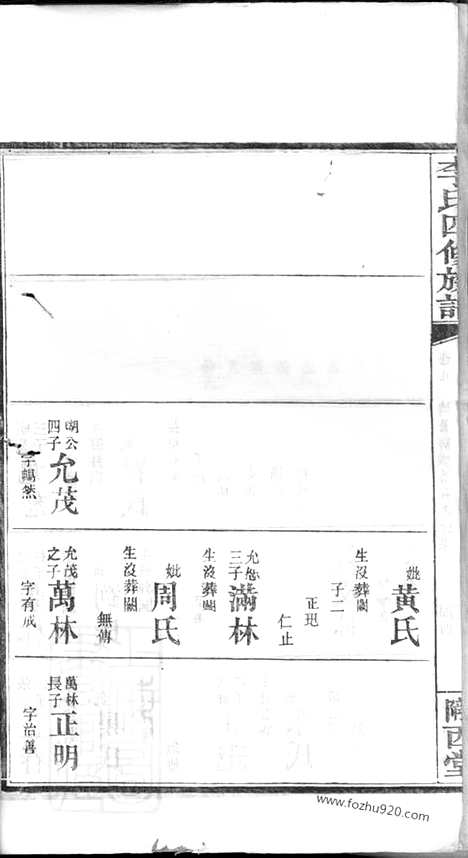 李氏四修族譜
隴西堂
胡公
四子
允茂
字暢然
妣
黄氏
生沒葬闕
子二
正
仁止
三子
滿林
生沒葬闕
妣
周氏
生沒葬闕
無傳
允茂
之子
萬林
字有成
萬林
長子
正明
字治善
www.fozhu920.com